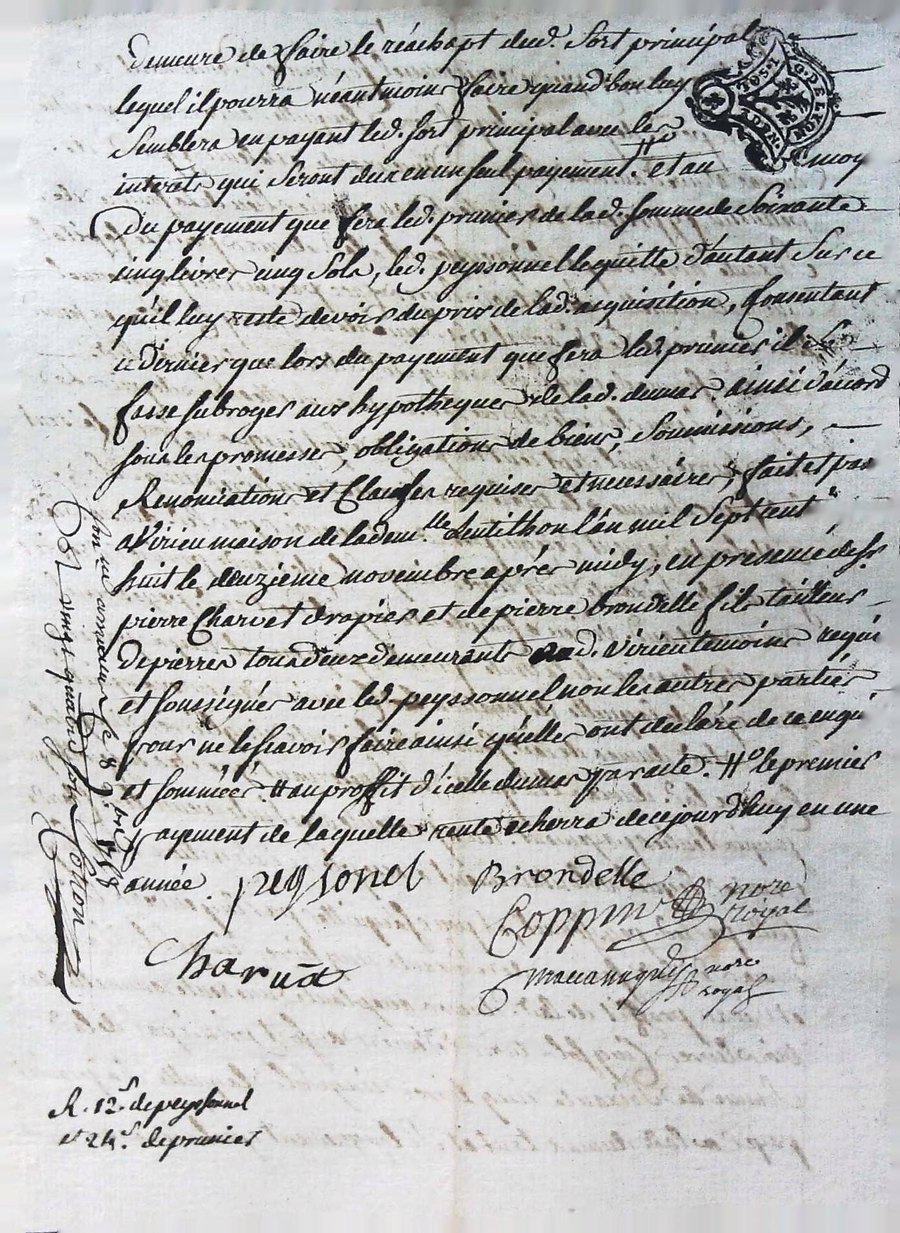 demeure de faire le réachapt dud. sort principal
lequel il pourra néantmoins faire quand bon luy
semblera en payant led. sort principal avec les
interêts qui seront dux en un seul payement. et au moy
du payement que fera led. prunier de lad. somme de soixante
cinq livres cinq sols, led. peyssonnel le quitte d'autant sur ce
qu'il luy reste devoir du pris de lad. acquisition, Consentant
ce dernier que lors du payement que fera led. prunier il se
fasse subroger aux hypotheques de lad. dumas. ainsi d'acord
sous les promesses, obligations de biens, soumissions,
Renonciations et Clauses requises et necessaires, fait et pas
a Virieu maison de lad. dem.lle Lentilhon l'an mil sept cent
huit le deuzième novembre après midy, en presence de sr.
pierre Charvet drapier et de pierre brondelle fils tailleur
de pierres tous deux demeurants aud. Virieu temoins requi
et soussignés avec led. peyssonnel, non les autres parties
pour ne le scavoir faire ainsi qu'elles ont declaré de ce enqui
et sommées. # au proffit d'icelle dumas # le premier
payement de laquelle rente echerra de ce jourd'huy en une
année. peysonel Brondelle
Coppin nore royal
Charvet
nore royal
R. 12s. de peyssonnel
et 24s. de prunier
le 8 9.bre
vingt quatre sols
G. D. LYON